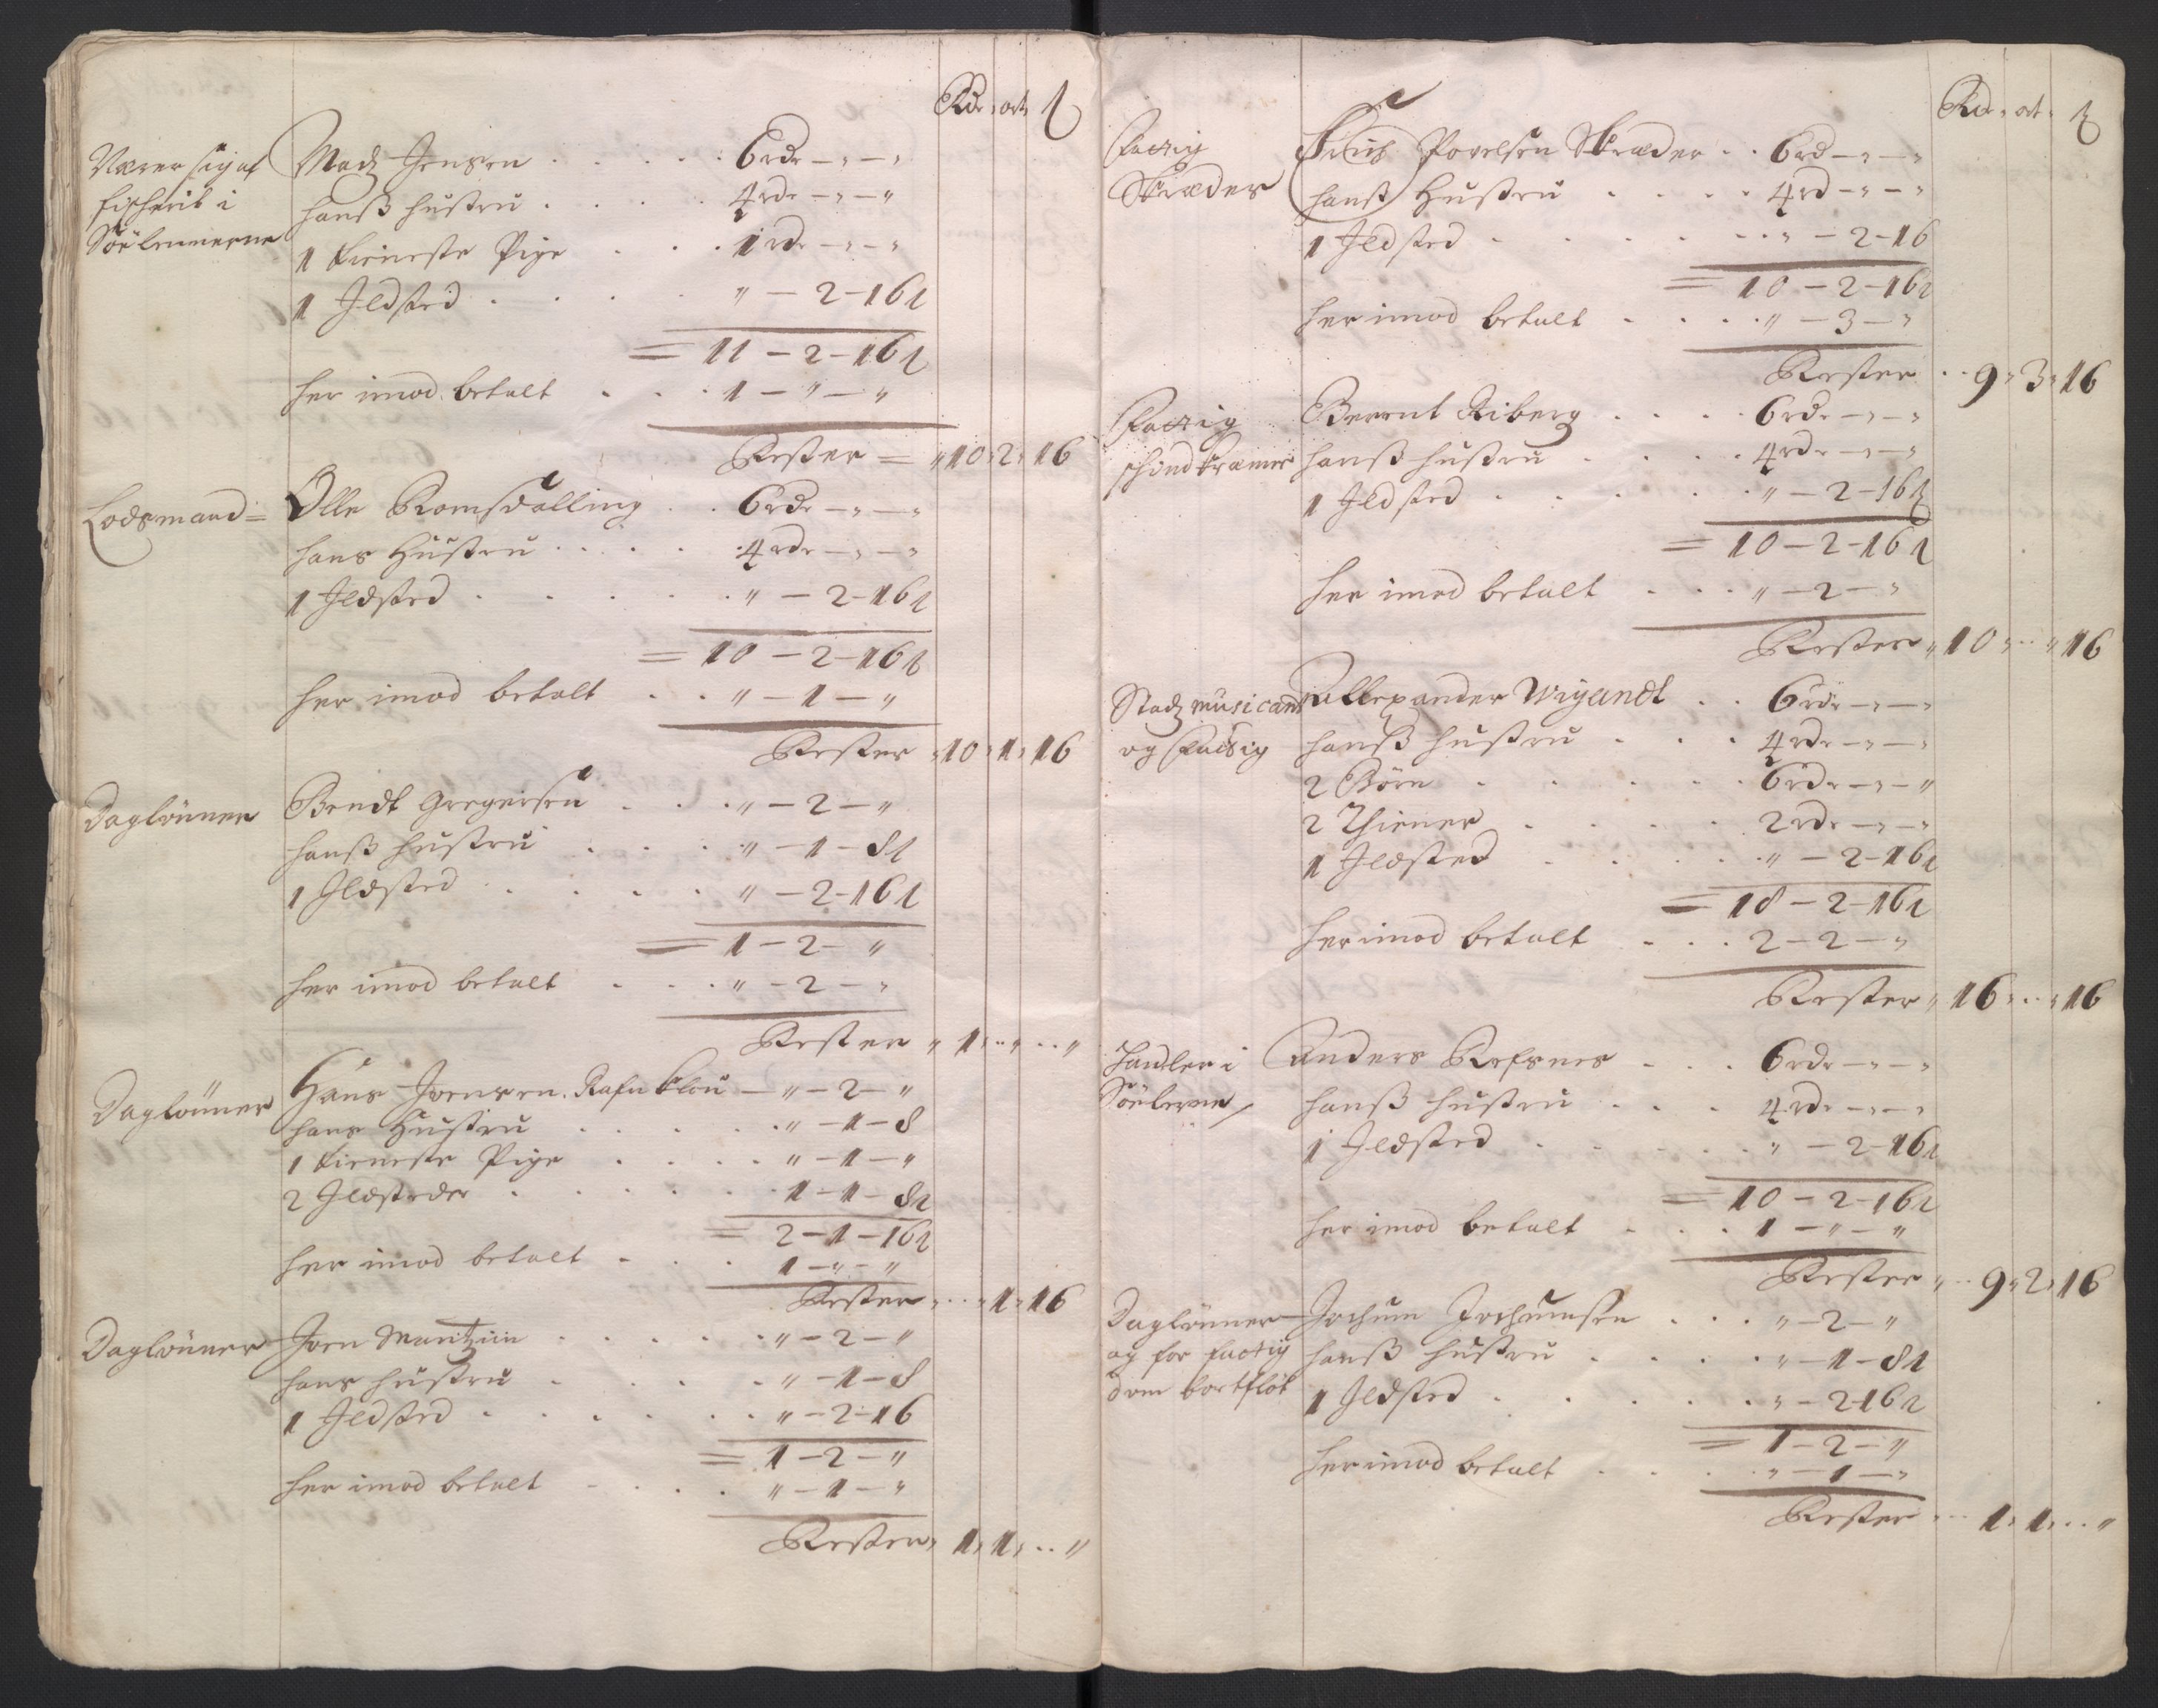 Rdr ort ß
Nærer sig af
fischerie i
Söelemerne
Madz Jensen . . . . . 6 rdr – „ – „
hanß hustru . . . . 4 rdr – „ – „
1 tieniste Pige . . . 1 rdr – „ – „
1 Jldsted . . . . „ – 2 – 16 ß
= 11 – 2 – 16 ß
her imod betalt . . . 1 – „ – „
Rester = „ 10 „ 2 „ 16
Lodsmand =
Olle Romsdalling . . 6 rdr – „ – „
hans Hustru . . . . . 4 rdr – „ – „
1 Jldsted . . . . . . „ – 2 – 16 ß
= 10 – 2 – 16 ß
her imod betalt . . . „ – 1 – „
Rester „ 10 „ 1 „ 16
Daglönner
Bendt Gregersen . . . „ – 2 – „
hanß hustru . . . . „ – 1 – 8 ß
1 Jldsted . . . . . „ – 2 – 16 ß
= 1 – 2 – „
her imod betalt . . . . „ – 2 – „
Rester „ 1 „ . . „ . . „
Daglönner
Hans Joensen Rafn klou – „ – 2 – „
hans Hustru . . . . . . „ – 1 – 8
1 tieneste Pige . . . . . „ – 1 – „
2 Jldsteder . . . . . . 1 – 1 – 8 ß
= 2 – 1 – 16 ß
her imod betalt . . . . 1 – „ – „
Rester „ . . . „ 1 „ 16
Daglönner
Joen Muritziin . . . . . . „ – 2 – „
hans hustru . . . . . „ – 1 – 8
1 Jldsted . . . . . . „ – 2 – 16
= 1 – 2 – „
her imod betalt . . . . „ – 1 – „
Rester „ 1 „ 1 „ . . „
Rdr ort ß
Fattig
Skræder
Povelsen Skræder . . 6 rd – „ – „
hanß Hustru . . . . 4 rd – „ – „
1 Jldsted . . . . . . „ – 2 – 16
= 10 – 2 – 16 ß
her imod betalt . . . . „ – 3 – „
Rester . . 9 „ 3 „ 16
Fattig
schindkræmer
Berent Riberg . . . . 6 rdr – „ – „
hanß hustru . . . . 4 rdr – „ – „
1 Jldsted . . . . . . „ – 2 – 16 ß
= 10 – 2 – 16 ß
her imod betalt . . . „ – 2 – „
Rester „ 10 „ . . „ 16
Stadz musicant
og Fattig
Allexander Wiyandt . . 6 rdr – „ – „
hanß hustru . . . 4 rdr – „ – „
2 Börn . . . . . . 6 rdr – „ – „
2 Thiener . . . . . 2 rdr – „ – „
1 Jldsted . . . . . „ – 2 – 16 ß
= 18 – 2 – 16 ß
her imod betalt . . . . 2 – 2 – „
Rester „ 16 „ . . „ 16
handler i
Söelerne
Anders Refsnes . . . 6 rdr – „ – „
hanß hustru . . . 4 rdr – „ – „
1 Jldsted . . . . . . „ – 2 – 16 ß
= 10 – 2 – 16 ß
her imod betalt . . . 1 – „ – „
Rester „ . . 9 „ 2 „ 16
Daglönner
og for fattig
dom bortfløt
Jochum Jochumsen . . . „ – 2 – „
hanß hustru . . . . . „ – 1 – 8 ß
1 Jldsted . . . . . . „ – 2 – 16 ß
= 1 – 2 – „
her imod betalt . . . . „ – 1 – „
Rester . . . 1 „ 1 „ . . „